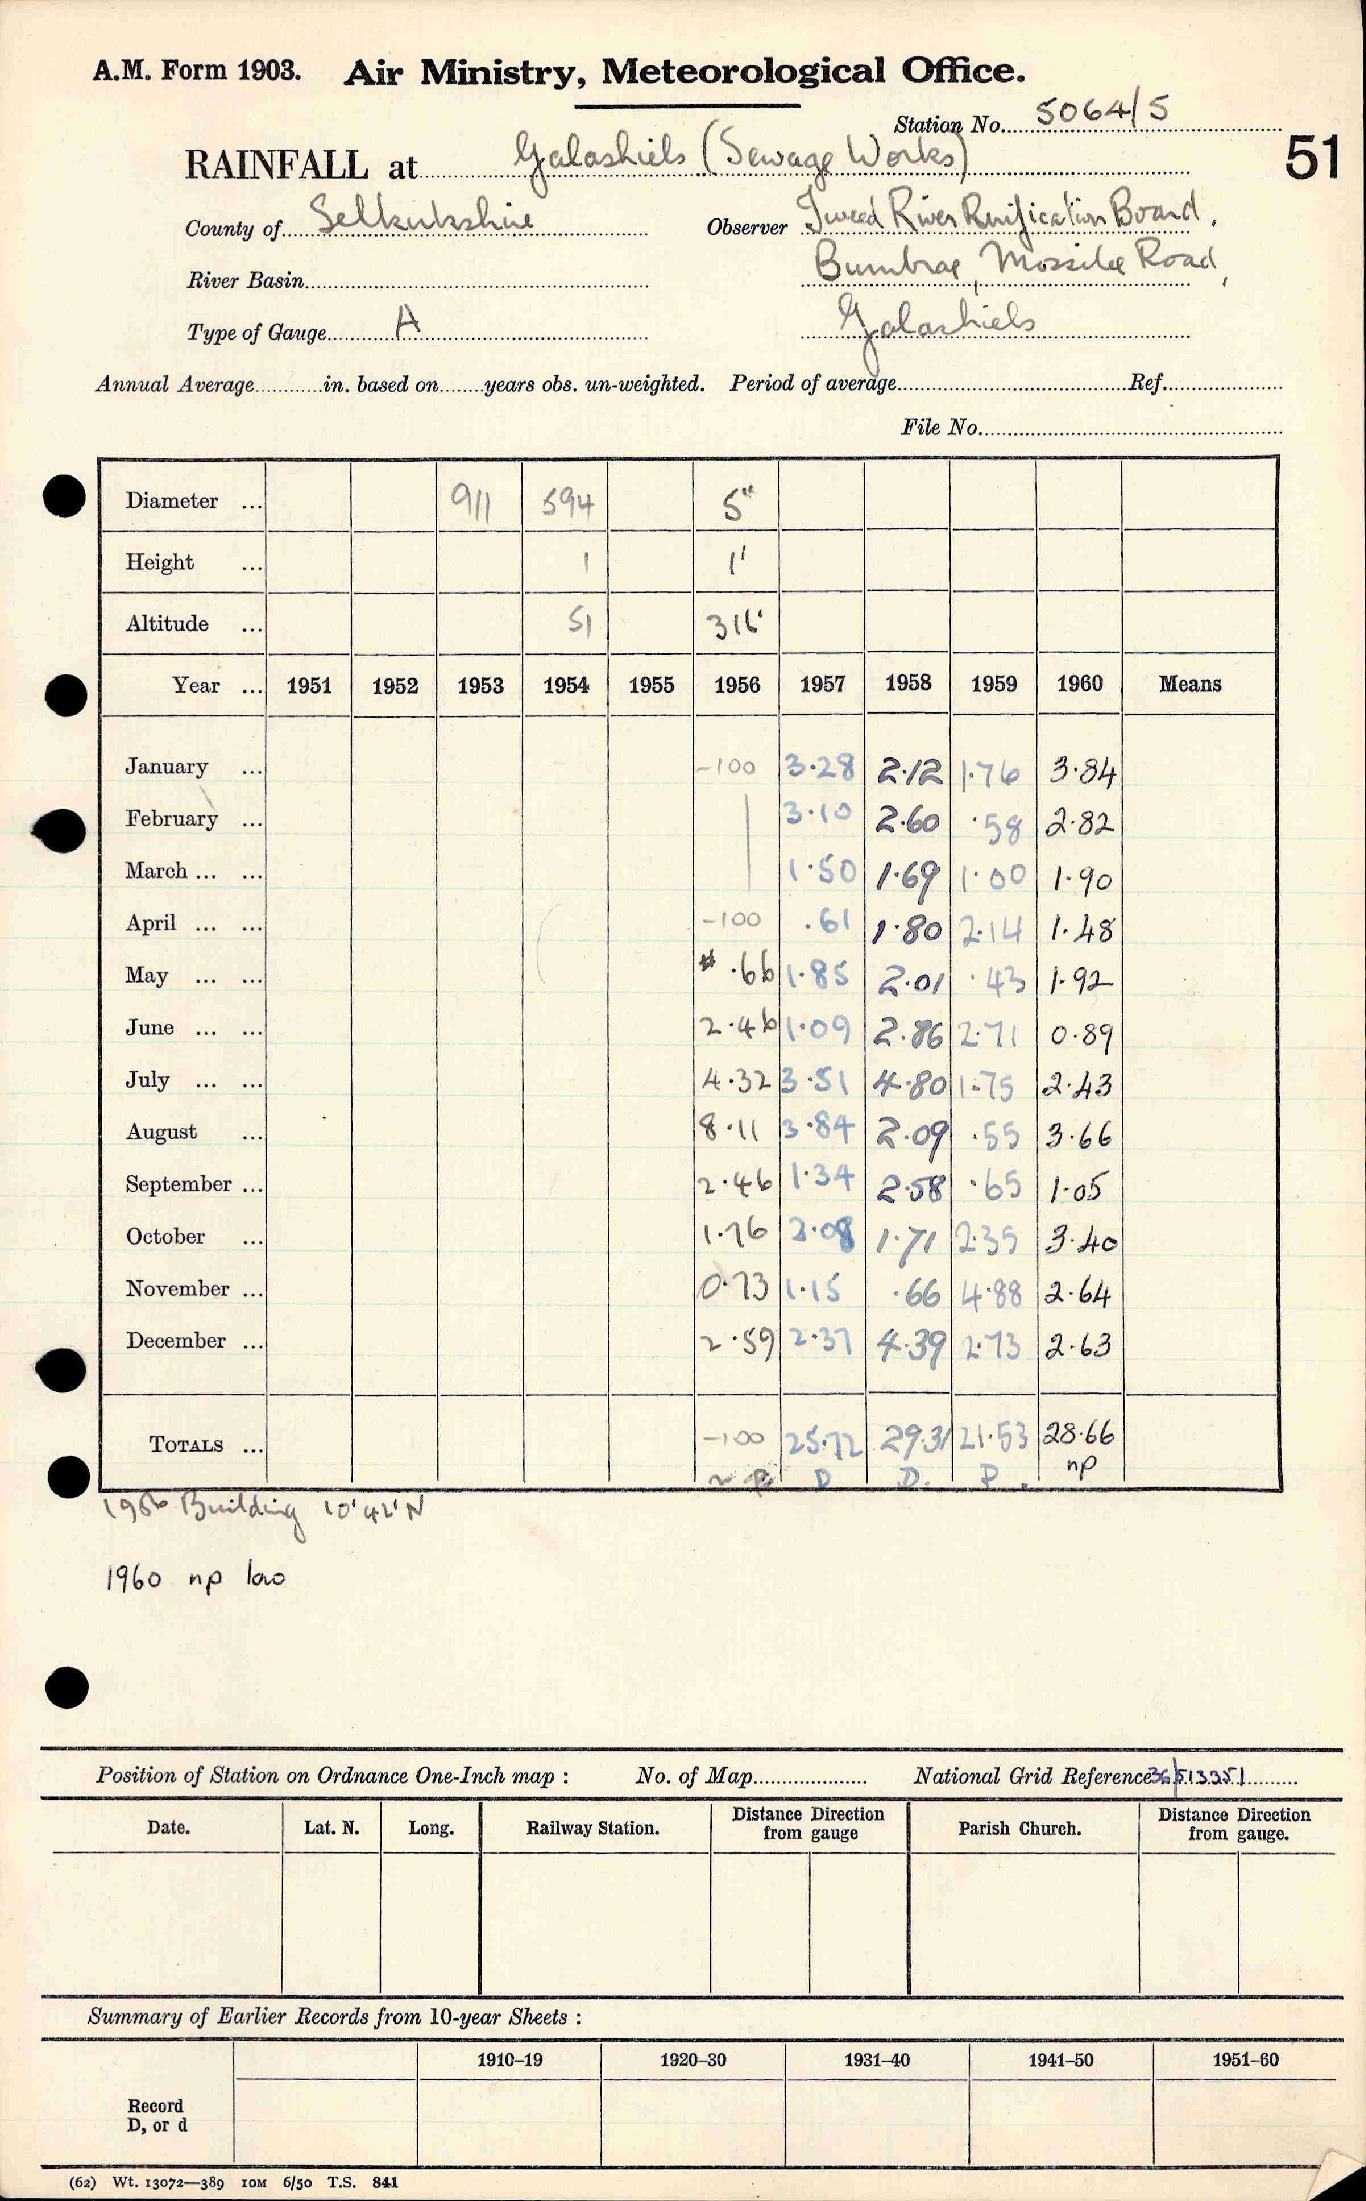 A.M. Form 1903. Air Ministry, Meteorological Office.
Station No. 5064/5
RAINFALL at Galashiels (Sewage Works) 51
County of Selkirkshire Observer Tweed River Purification Board,
River Basin Road,
Type of Gauge A Galashiels
Annual Average in. based on years obs. un-weighted. Period of average Ref.
File No.
Diameter ... 911 594 5"
Height ... 1 1'
Altitude ... 51 316'
Year ... 1951 1952 1953 1954 1955 1956 1957 1958 1959 1960 Means
January ... -100 3.28 2.12 1.76 3.84
February ... 3.10 2.60 .58 2.82
March ... ... 1.50 1.69 1.00 1.90
April ... ... -100 .61 1.80 2.14 1.48
May ... ... * .66 1.85 2.01 .43 1.92
June ... ... 2.46 1.09 2.86 2.71 0.89
July ... ... 4.32 3.51 4.80 1.75 2.43
August ... 8.11 3.84 2.09 .55 3.66
September ... 2.46 1.34 2.58 .65 1.05
October ... 1.76 2.08 1.71 2.35 3.40
November ... 0.73 1.15 .66 4.88 2.64
December ... 2.59 2.37 4.39 2.73 2.63
TOTALS ... -100 25.72 29.31 21.53 28.66
D D. P. np
1956 Building 10' 42' N
1960 np low
Position of Station on Ordnance One-Inch map : No. of Map National Grid Reference 36/513351
Date. Lat. N. Long. Railway Station. Distance from gauge Direction Parish Church. Distance Direction from gauge.
Summary of Earlier Records from 10-year Sheets :
1910-19 1920-30 1931-40 1941-50 1951-60
Record
D, or d
(62) Wt. 13072—389 10M 6/50 T.S. 841